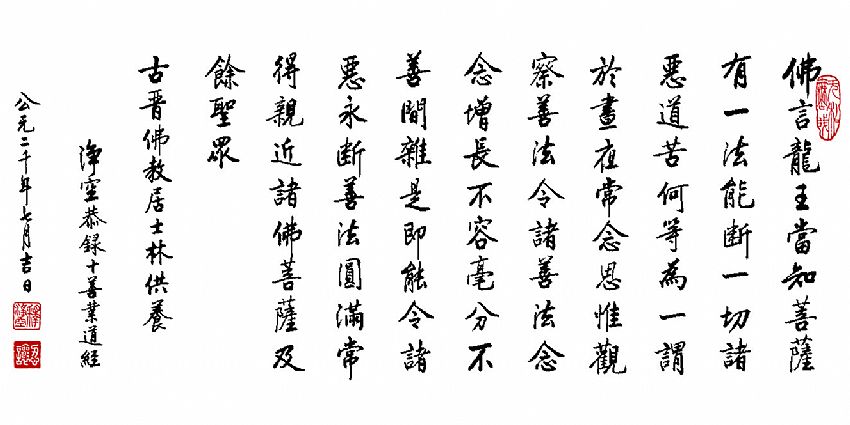 佛言龍王當知菩薩
有一法能斷一切諸
惡道苦何等為一謂
於晝夜常念思惟觀
察善法令諸善法念
念增長不容毫分不
善間雜是即能令諸
惡永斷善法圓滿常
得親近諸佛菩薩及
餘聖眾
古晋佛教居士林供養
淨空恭録十善業道經
公元二千年七月吉日